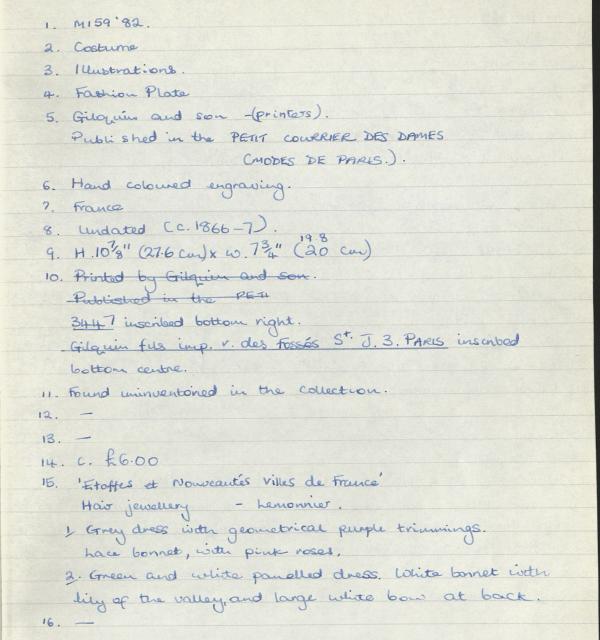 1. M159 '82.
2. Costume
3. Illustrations.
4. Fashion Plate
5. Gilquin and son -(printers).
Published in the PETIT COURRIER DES DAMES
(MODES DE PARIS.).
6. Hand coloured engraving.
7. France
8. Undated (c. 1866-7).
9. H. 10 7/8" (27.6 cm) x W. 7 3/4" (20 cm)
19.8
10. Printed by Gilquin and son.
Published in the PETI
3447 inscribed bottom right.
Gilquin fils imp. r. des Fossés St. J. 3. PARIS inscribed
bottom centre.
11. Found uninventoried in the collection.
12. —
13. —
14. c. £6.00
15. 'Etoffes et Nouveautés villes de France'
Hair jewellery - Lemonnier.
1. Grey dress with geometrical purple trimmings.
Lace bonnet, with pink roses.
2. Green and white panelled dress. White bonnet with
lily of the valley, and large white bow at back.
16. —